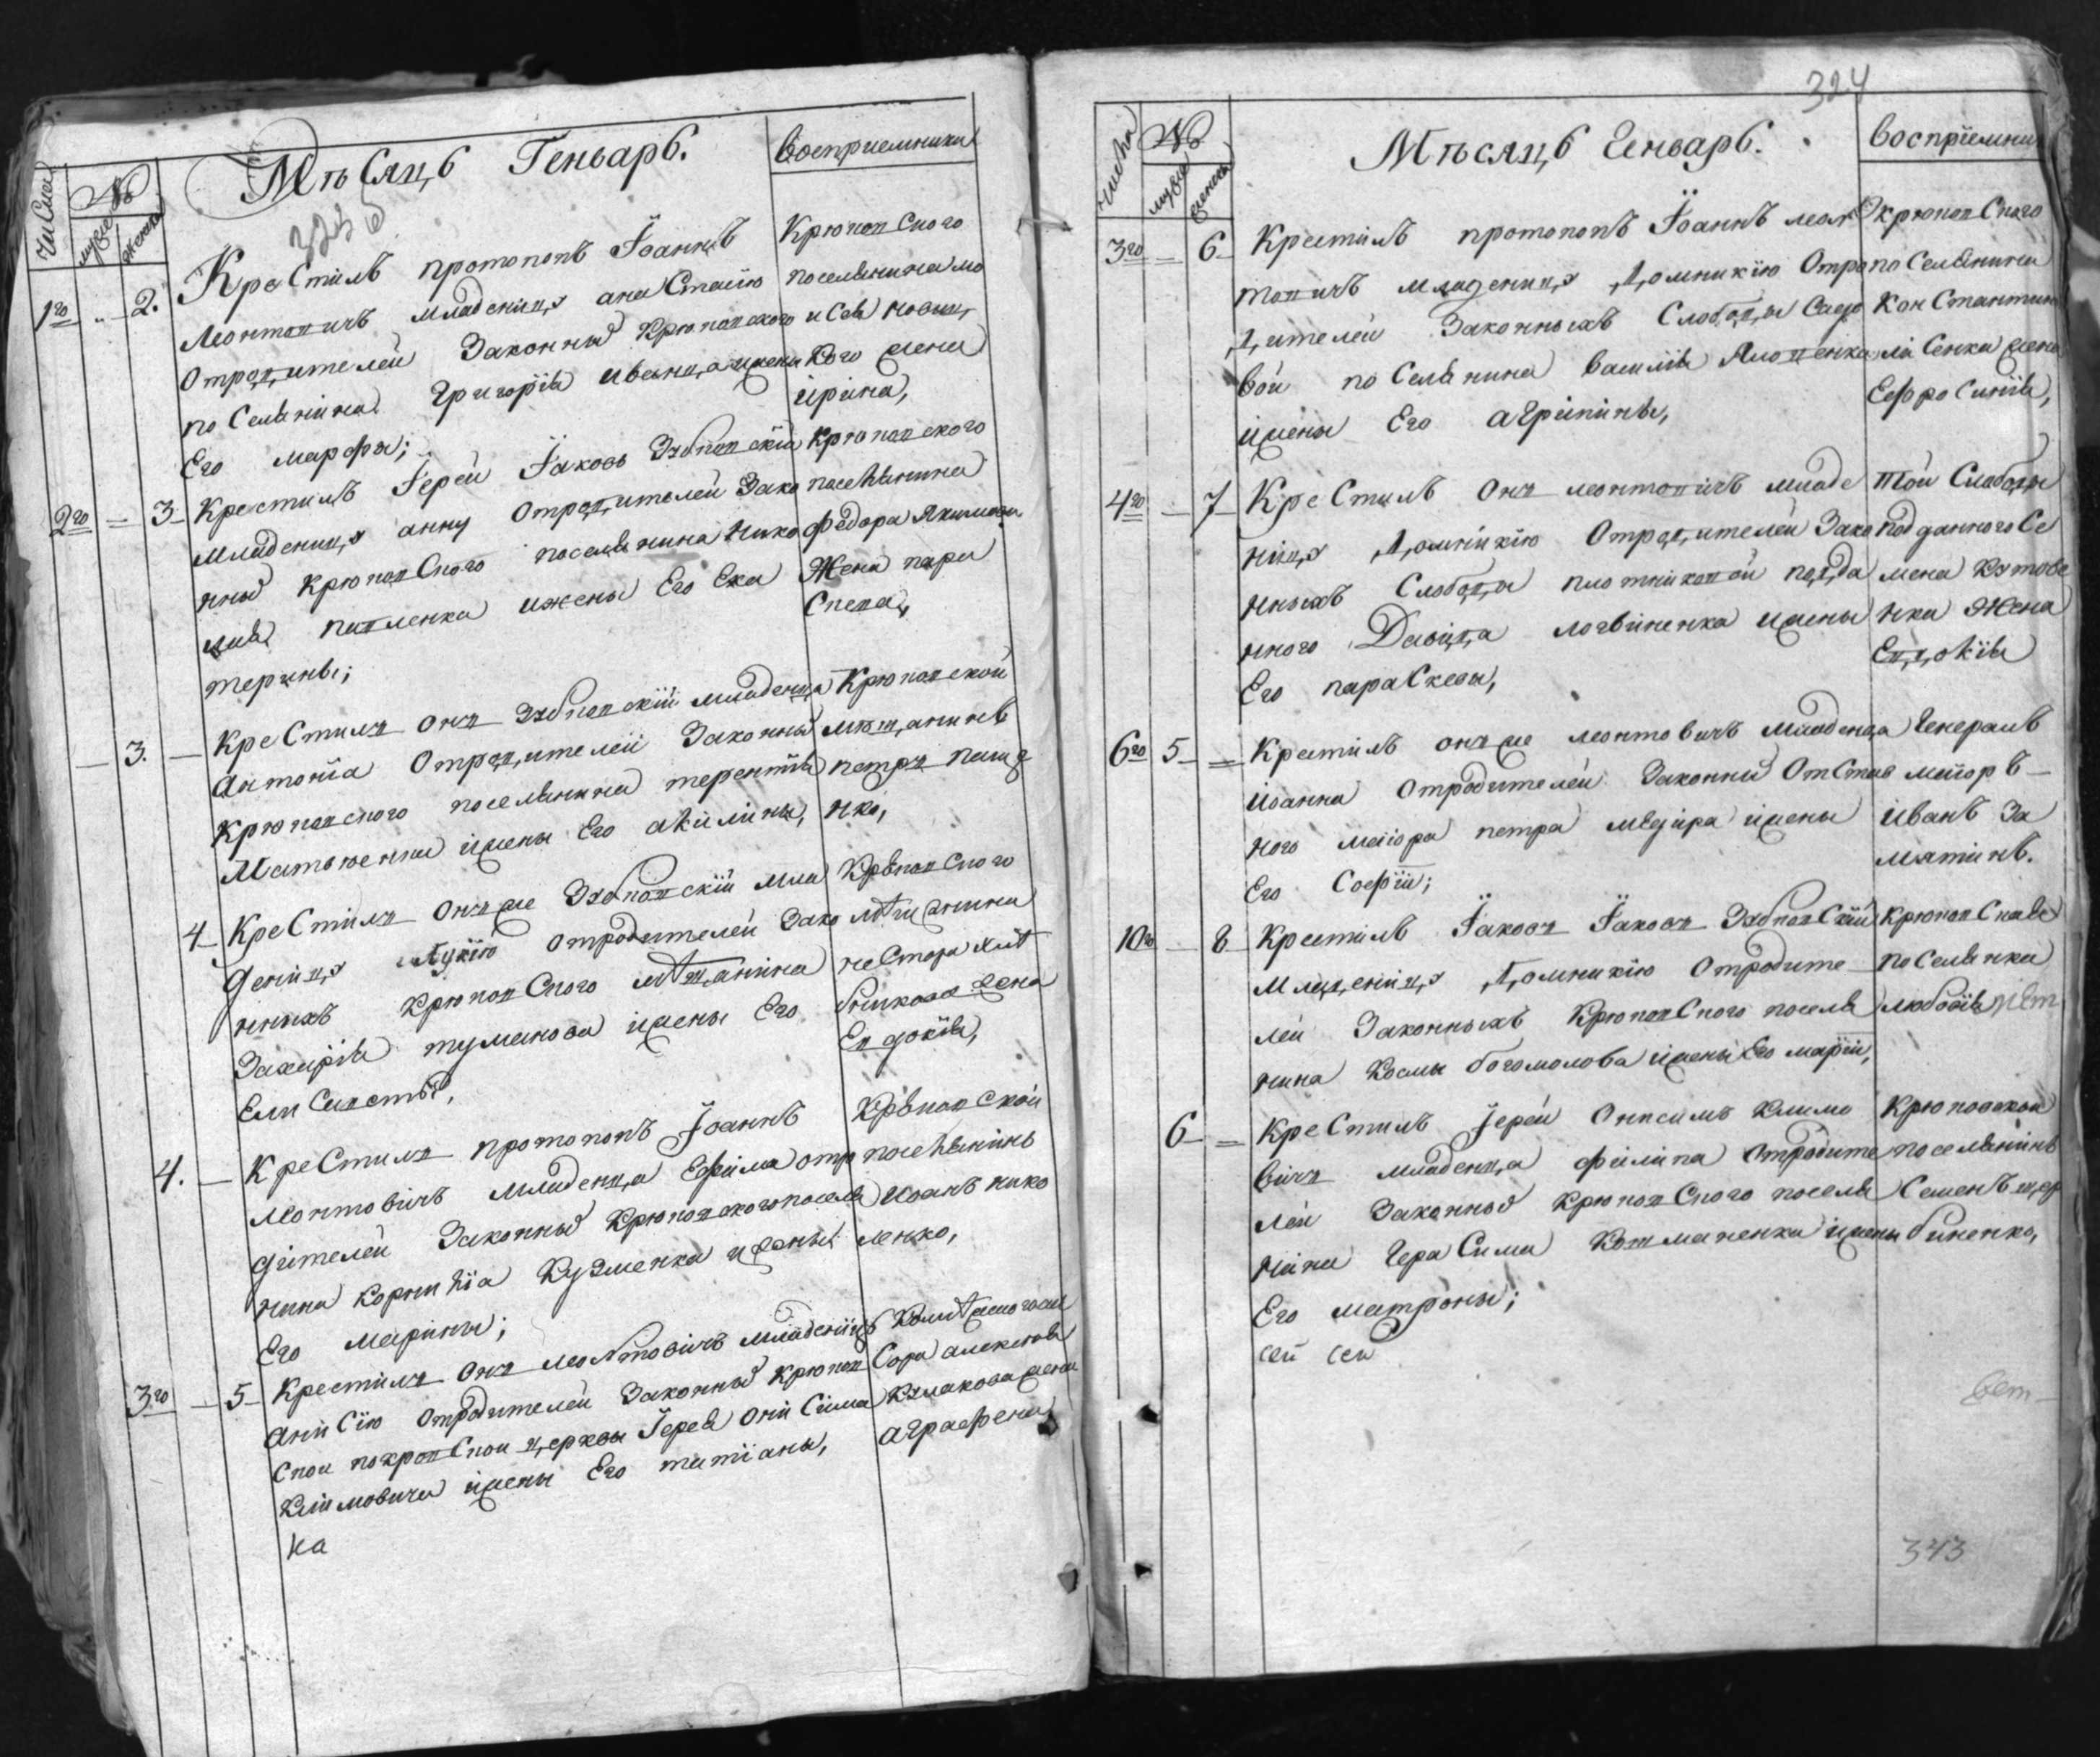 Числа
№
мужес
женска
Мѣсяцъ Генварь.
восприемники
323 об
1го
2.
Крестилъ протопопъ Іоаннъ
Леонтовичъ младеницу анастасію
Отродителей Законны Крюковского
поселянина Григорія
Его марфы;
Крюковского
поселянина мо
исея новиц
кого жена
ирина,
2го
3
Крестилъ Іерей Іаковъ Зубковскій
Младеницу анну Отродителей Зако
нны Крюковского поселянина Нико
лая павленка ижены Его Ека
терины;
Крюковского
поселянина
федора Якимова
Жена пара
скева,
3.
Крестилъ онъ Зубковскій младенца
антонія Отродителей Законны
Крюковского поселянина терентія
Матвеенка ижены Его акилины,
Крюковской
мѣщанинъ
петръ паще
нко,
4
Крестилъ онъ же Зубковскій мла
деницу Лукію отродителей Зако
нныхъ Крюковского мѣщанина
Захарія туманова ижены Его
Елисаветы,
Крюковского
мѣщанина
нестора хлѣ
бникова жена
Евдокія,
4.
Крестилъ протопопъ Іоаннъ
Леонтовичъ младенца Ефима отро
дителей Законны Крюковского поселя
нина корнилія Кузменка ижены
Его марины;
Крюковской
поселянинъ
Иоанъ нико
ленко,
3го
5
Крестилъ онъ Леонтовичъ младеницу
анисію отродителей Законны Крюков
ской покровской церквы Іерея онисима
Климовича ижены Его татіаны,
сора алексея
Кулакова жена
аграфена,
на
324
числа
№
мужес
женска
Мѣсяцъ Генварь.
восприемни
3го
6
Крестилъ протопопъ Іоаннъ леон
товичъ младеницу домникію Отро
дителей Законныхъ Слободы Садо
вой поселянина василія
ижены Его агрипины,
Крюковского
поселянина
Константин
лисенка жена
Ефросинія,
4го
7
Крестилъ онъ леонтовичъ младе
ницу домникію Отродителей Зако
нныхъ Слободы плотниковой подда
нного Давида логвиненка ижены
Его параскевы,
той Слободы
подданного Се
мена Кутове
нка Жена
Евдокія
6го
5
Крестилъ онъ же леонтовичъ младенца
Иоанна отродителей Законны Отстав
ного маіора петра ижены
Его Софіи;
Генералъ
маіоръ
иванъ За
мятинъ.
10го
8
Крестилъ Іаковъ Іаковъ Зубковскій
Младеницу домникію отродите
лей Законныхъ Крюковского поселя
нина Космы богомолова ижены Его маріи,
Крюковская
поселянка
любовія
6
Крестилъ Іерей Онисимъ Климо
вичъ младенца филипа отродите
лей Законны Крюковского поселя
нина Герасима Котмаренка ижены
Его матроны;
Крюковской
поселянинъ
Семенъ щер
биненко,
сей сей
343